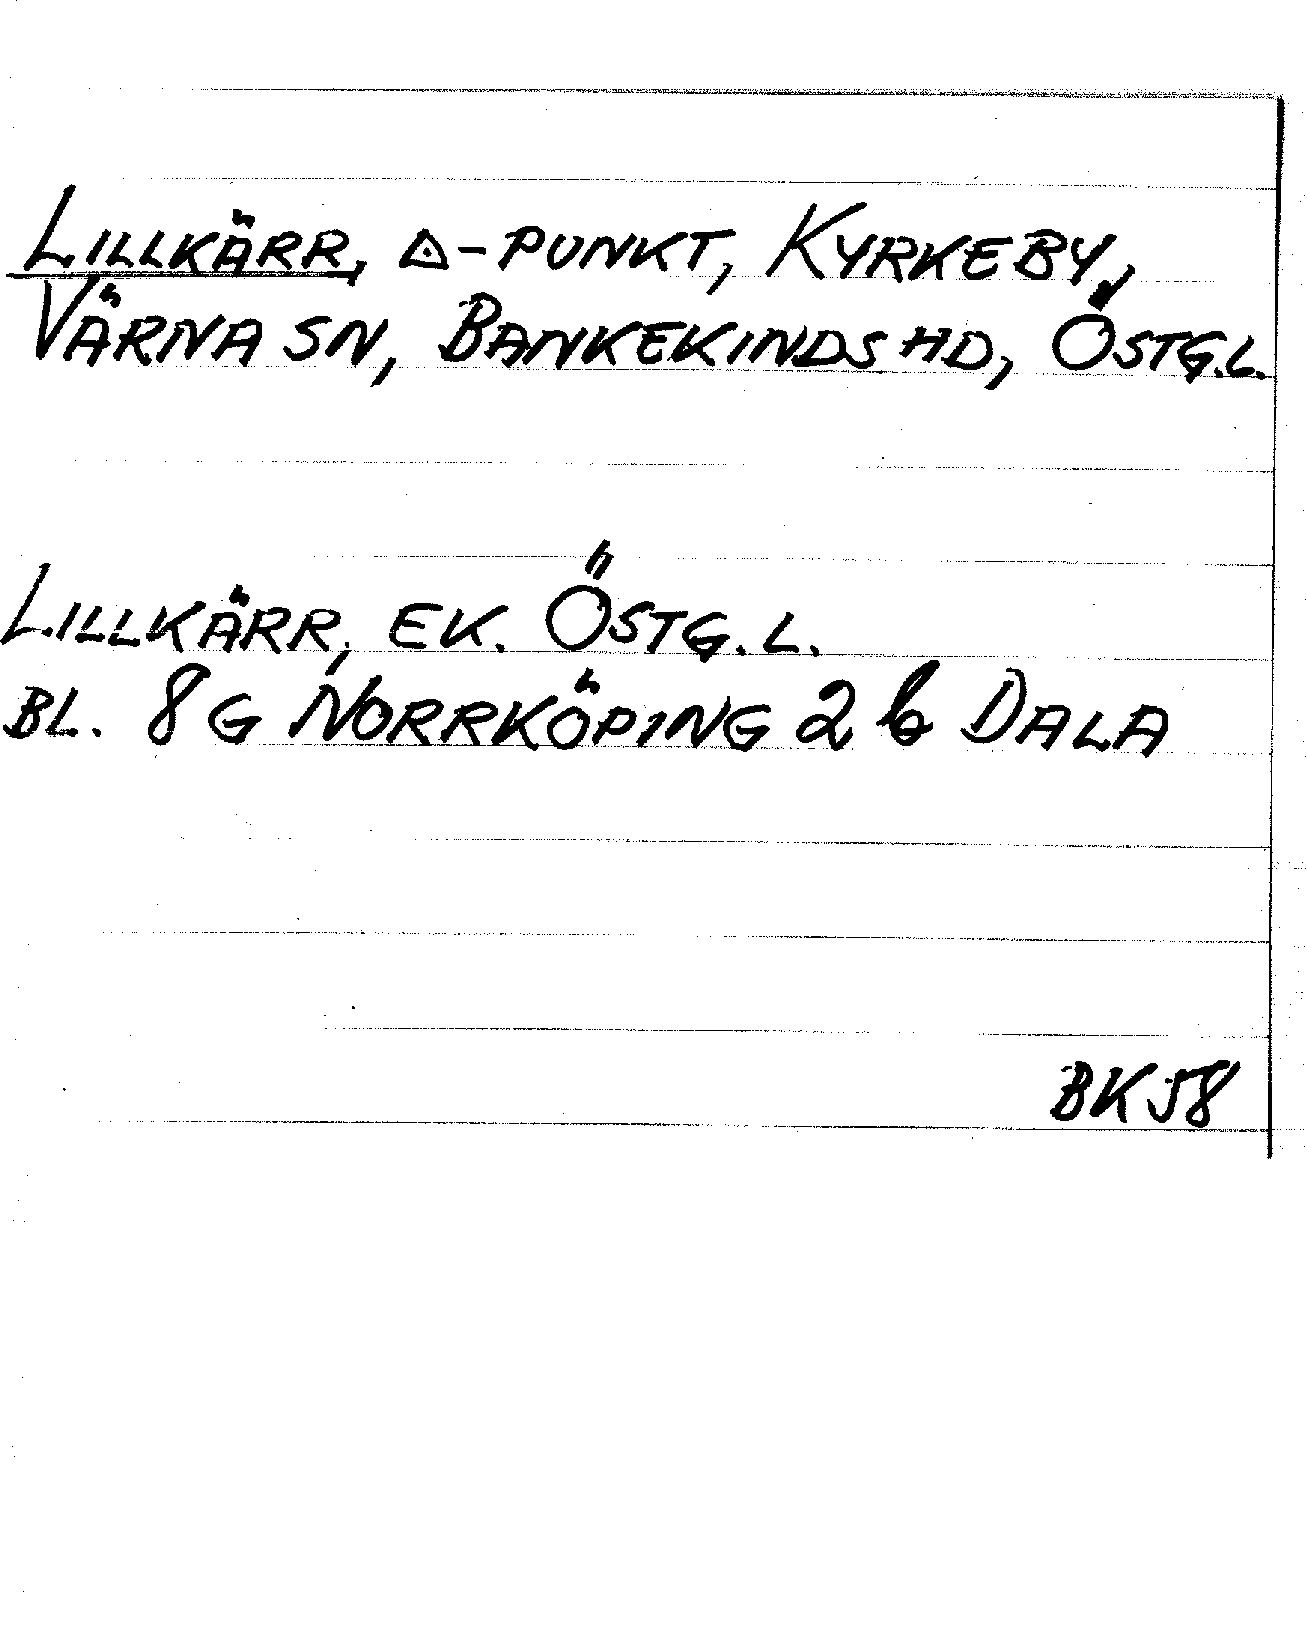 LILLKÄRR, △-PUNKT, KYRKEBY,
VÄRNA SN, BANKEKINDS HD, ÖSTG.L.
LILLKÄRR, EK. ÖSTG.L.
BL. 8G NORRKÖPING 2b DALA
BK58